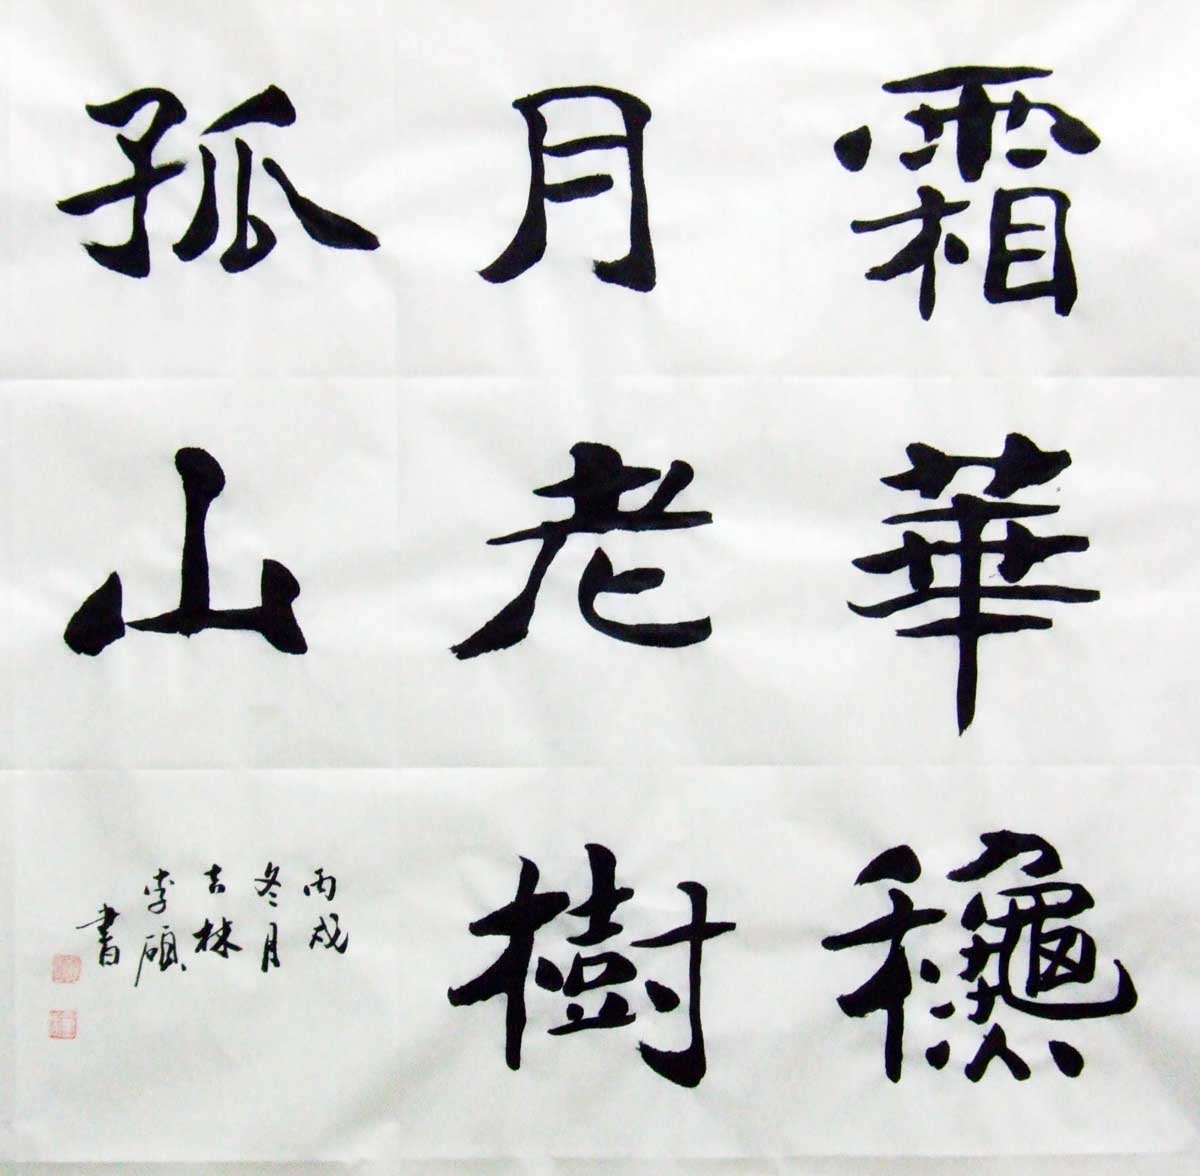 霜華𥤛
月老樹
孤山
丙戌
冬月
吉林
李碩
書